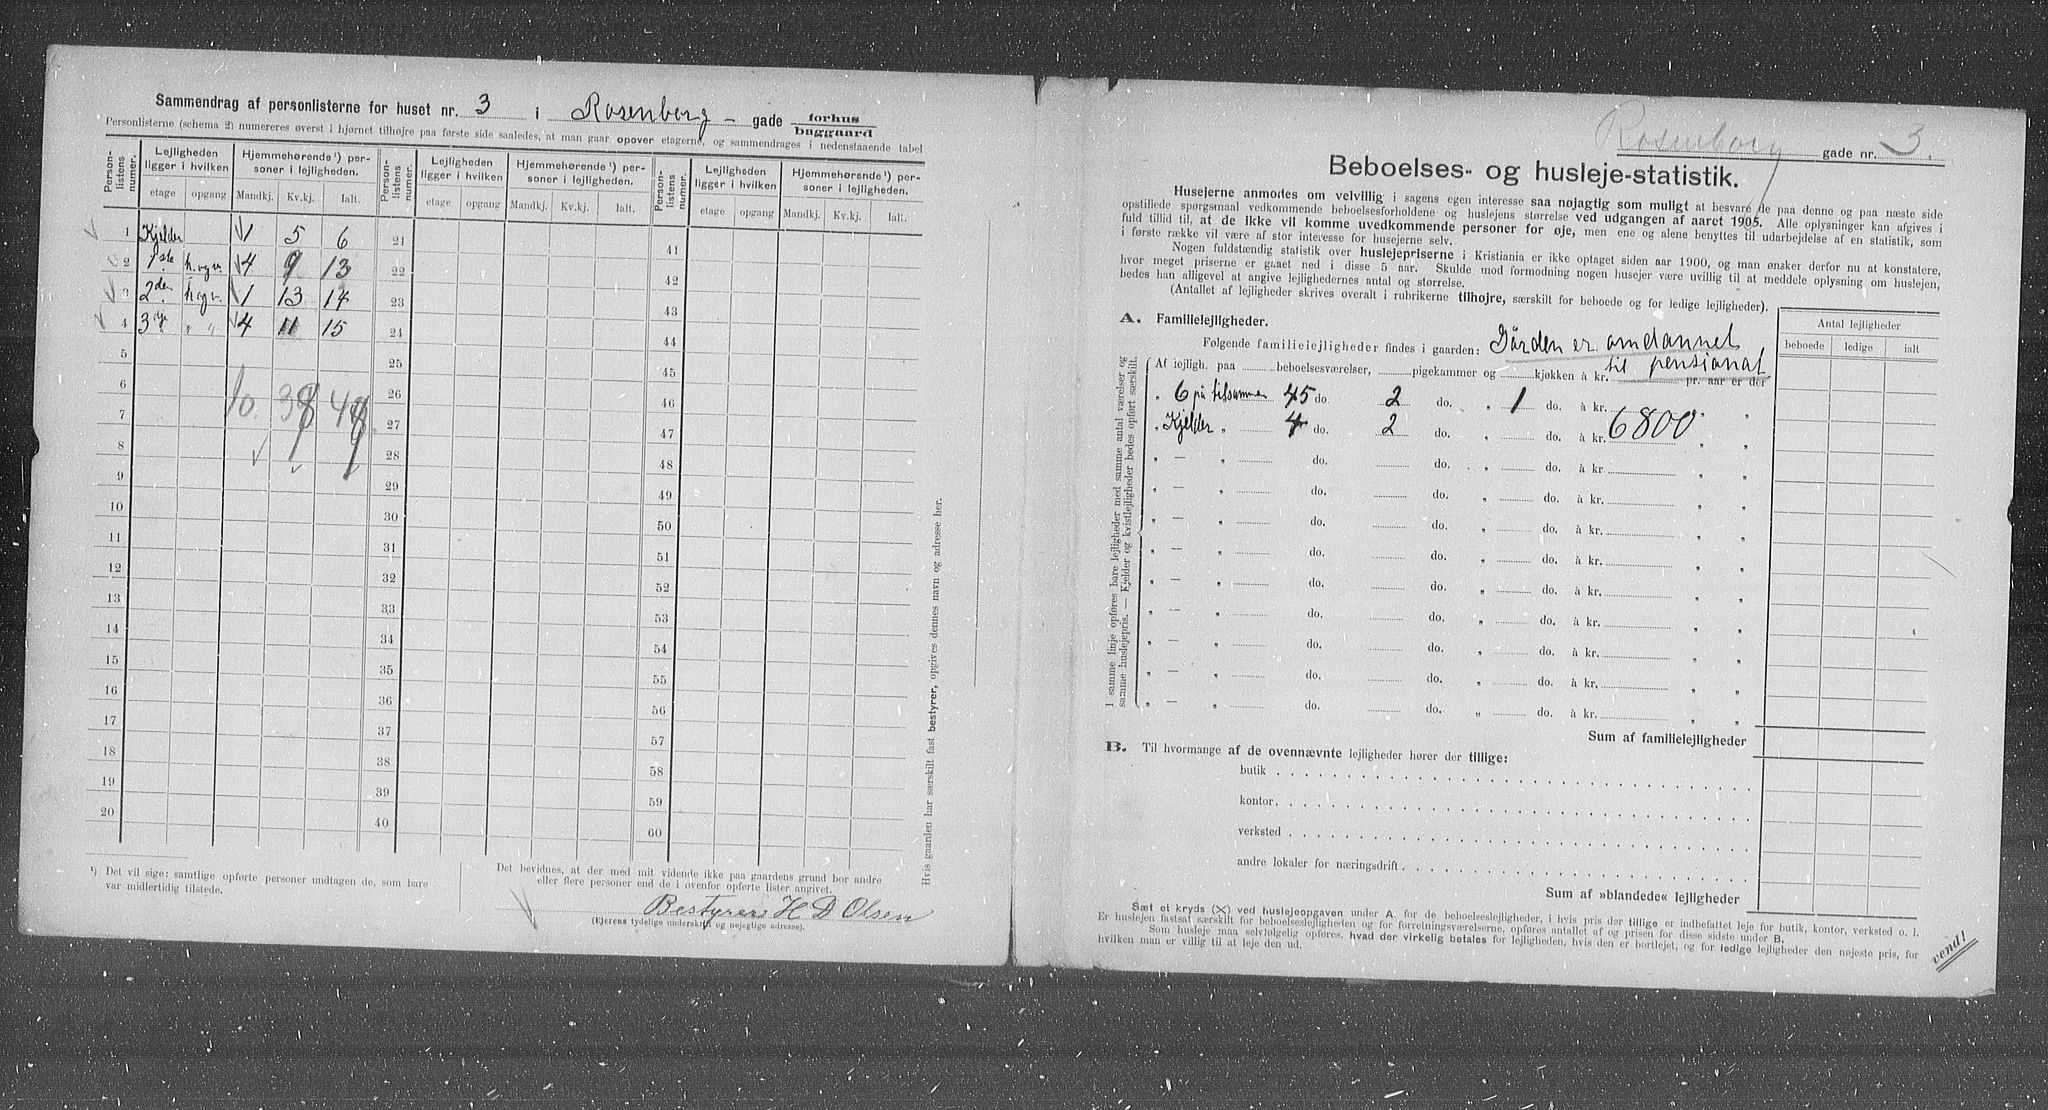 Sammendrag af personlisterne for huset nr. 3 i Rosenborg – gade forhus
baggaard
Personlisterne (schema 2) numereres øverst i hjørnet tilhøjre paa første side saaledes, at man gaar opover etagerne, og sammendrages i nedenstaaende tabel
Person-listens numer. Lejligheden ligger i hvilken Hjemmehørende¹) personer i lejligheden. Person-listens numer. Lejligheden ligger i hvilken Hjemmehørende¹) personer i lejligheden. Person-listens numer. Lejligheden ligger i hvilken Hjemmehørende¹) personer i lejligheden.
etage opgang Mandkj. Kv.kj. Ialt. etage opgang Mandkj. Kv.kj. Ialt. etage opgang Mandkj. Kv.kj. Ialt.
1 Kjelder 1 5 6 21 41
2 1ste h. og v. 4 9 13 22 42
3 2den h og v. 1 13 14 23 43
4 3dje " " 4 11 15 24 44
5 25 45
6 26 46
10. 38 48
7 27 47
8 28 48
9 29 49
10 30 50
11 31 51
12 32 52
13 33 53
14 34 54
15 35 55
16 36 56
17 37 57
18 38 58
19 39 59
20 40 60
¹) Det vil sige: samtlige opførte personer undtagen de, som bare
var midlertidig tilstede.
Det bevidnes, at der med mit vidende ikke paa gaardens grund bor andre
eller flere personer end de i ovenfor opførte lister angivet.
Bestyrer H D Olsen
(Ejerens tydelige underskrift og nøjegtige adresse).
Hvis gaarden har særskilt fast bestyrer, opgives dennes navn og adresse her.
Rosenborg gade nr. 3.
Beboelses- og husleje-statistik.
Husejerne anmodes om velvillig i sagens egen interesse saa nøjagtig som muligt at besvare de paa denne og paa næste side
opstillede spørgsmaal vedkommende beboelsesforholdene og huslejens størrelse ved udgangen af aaret 1905. Alle oplysninger kan afgives i
fuld tillid til, at de ikke vil komme uvedkommende personer for øje, men ene og alene benyttes til udarbejdelse af en statistik, som
i første række vil være af stor interesse for husejerne selv.
Nogen fuldstændig statistik over huslejepriserne i Kristiania er ikke optaget siden aar 1900, og man ønsker derfor nu at konstatere,
hvor meget priserne er gaaet ned i disse 5 aar. Skulde mod formodning nogen husejer være uvillig til at meddele oplysning om huslejen,
bedes han alligevel at angive lejlighedernes antal og størrelse.
(Antallet af lejligheder skrives overalt i rubrikerne tilhøjre, særskilt for beboede og for ledige lejligheder).
A. Familielejligheder.
Antal lejligheder
beboede ledige ialt
Følgende familielejligheder findes i gaarden: Gården er omdannet
til pensionat
Af lejligh. paa beboelsesværelser, pigekammer og kjøkken à kr. pr. aar er der
" 6 på tilsammen 45 do. 2 do. " 1 do. à kr. " "
" Kjelder " 4 do. 2 do. " do. à kr. 6800 " "
" — " do. do. " do. à kr. " "
" — " do. do. " do. à kr. " "
" — " do. do. " do. à kr. " "
" — " do. do. " do. à kr. " "
" — " do. do. " do. à kr. " "
" — " do. do. " do. à kr. " "
" — " do. do. " do. à kr. " "
" — " do. do. " do. à kr. " "
" — " do. do. " do. à kr. " "
I samme linje opføres bare lejligheder med samme antal værelser og
samme huslejepris. — Kjelder og kvistlejligheder bedes opført særskilt.
Sum af familielejligheder
B. Til hvormange af de ovennævnte lejligheder hører der tillige:
butik
kontor
verksted
andre lokaler for næringsdrift
Sum af »blandede« lejligheder
Sæt et kryds (X) ved huslejeopgaven under A. for de beboelseslejligheder, i hvis pris der tillige er indbefattet leje for butik, kontor, verksted o. l.
Er huslejen fastsat særskilt for beboelseslejligheden og for forretningsværelserne, opføres antallet af og prisen for disse sidste under B.
Som husleje maa selvfølgelig opføres, hvad der virkelig betales for lejligheden, hvis den er bortlejet, og for ledige lejligheder den nøjeste pris, for
hvilken man er villig til at leje den ud.
vend!